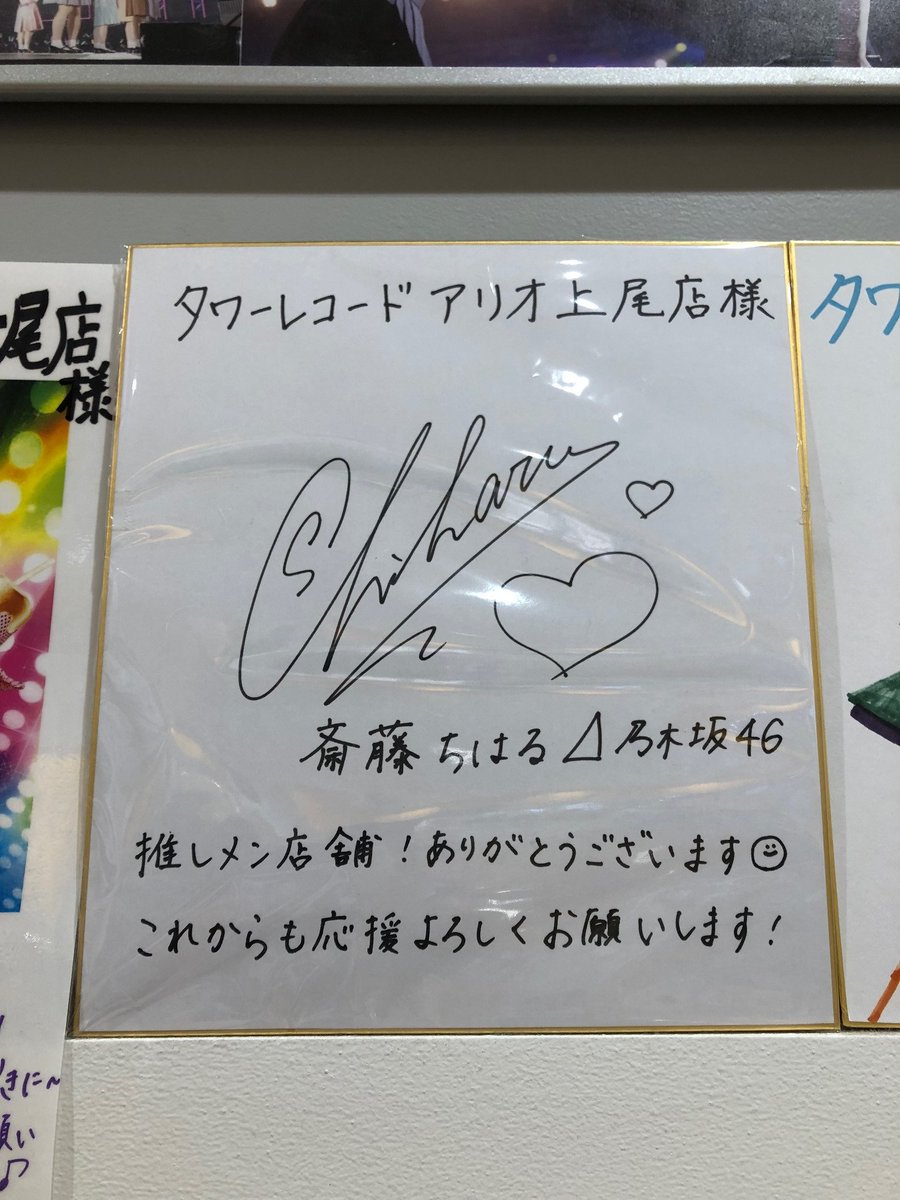 タワーレコード アリオ上尾店様
Chiharu
斎藤ちはる⊿乃木坂46
推しメン店舗!ありがとうございます☺
これからも応援よろしくお願いします!
尾店
様
タワ
きに〜
願い